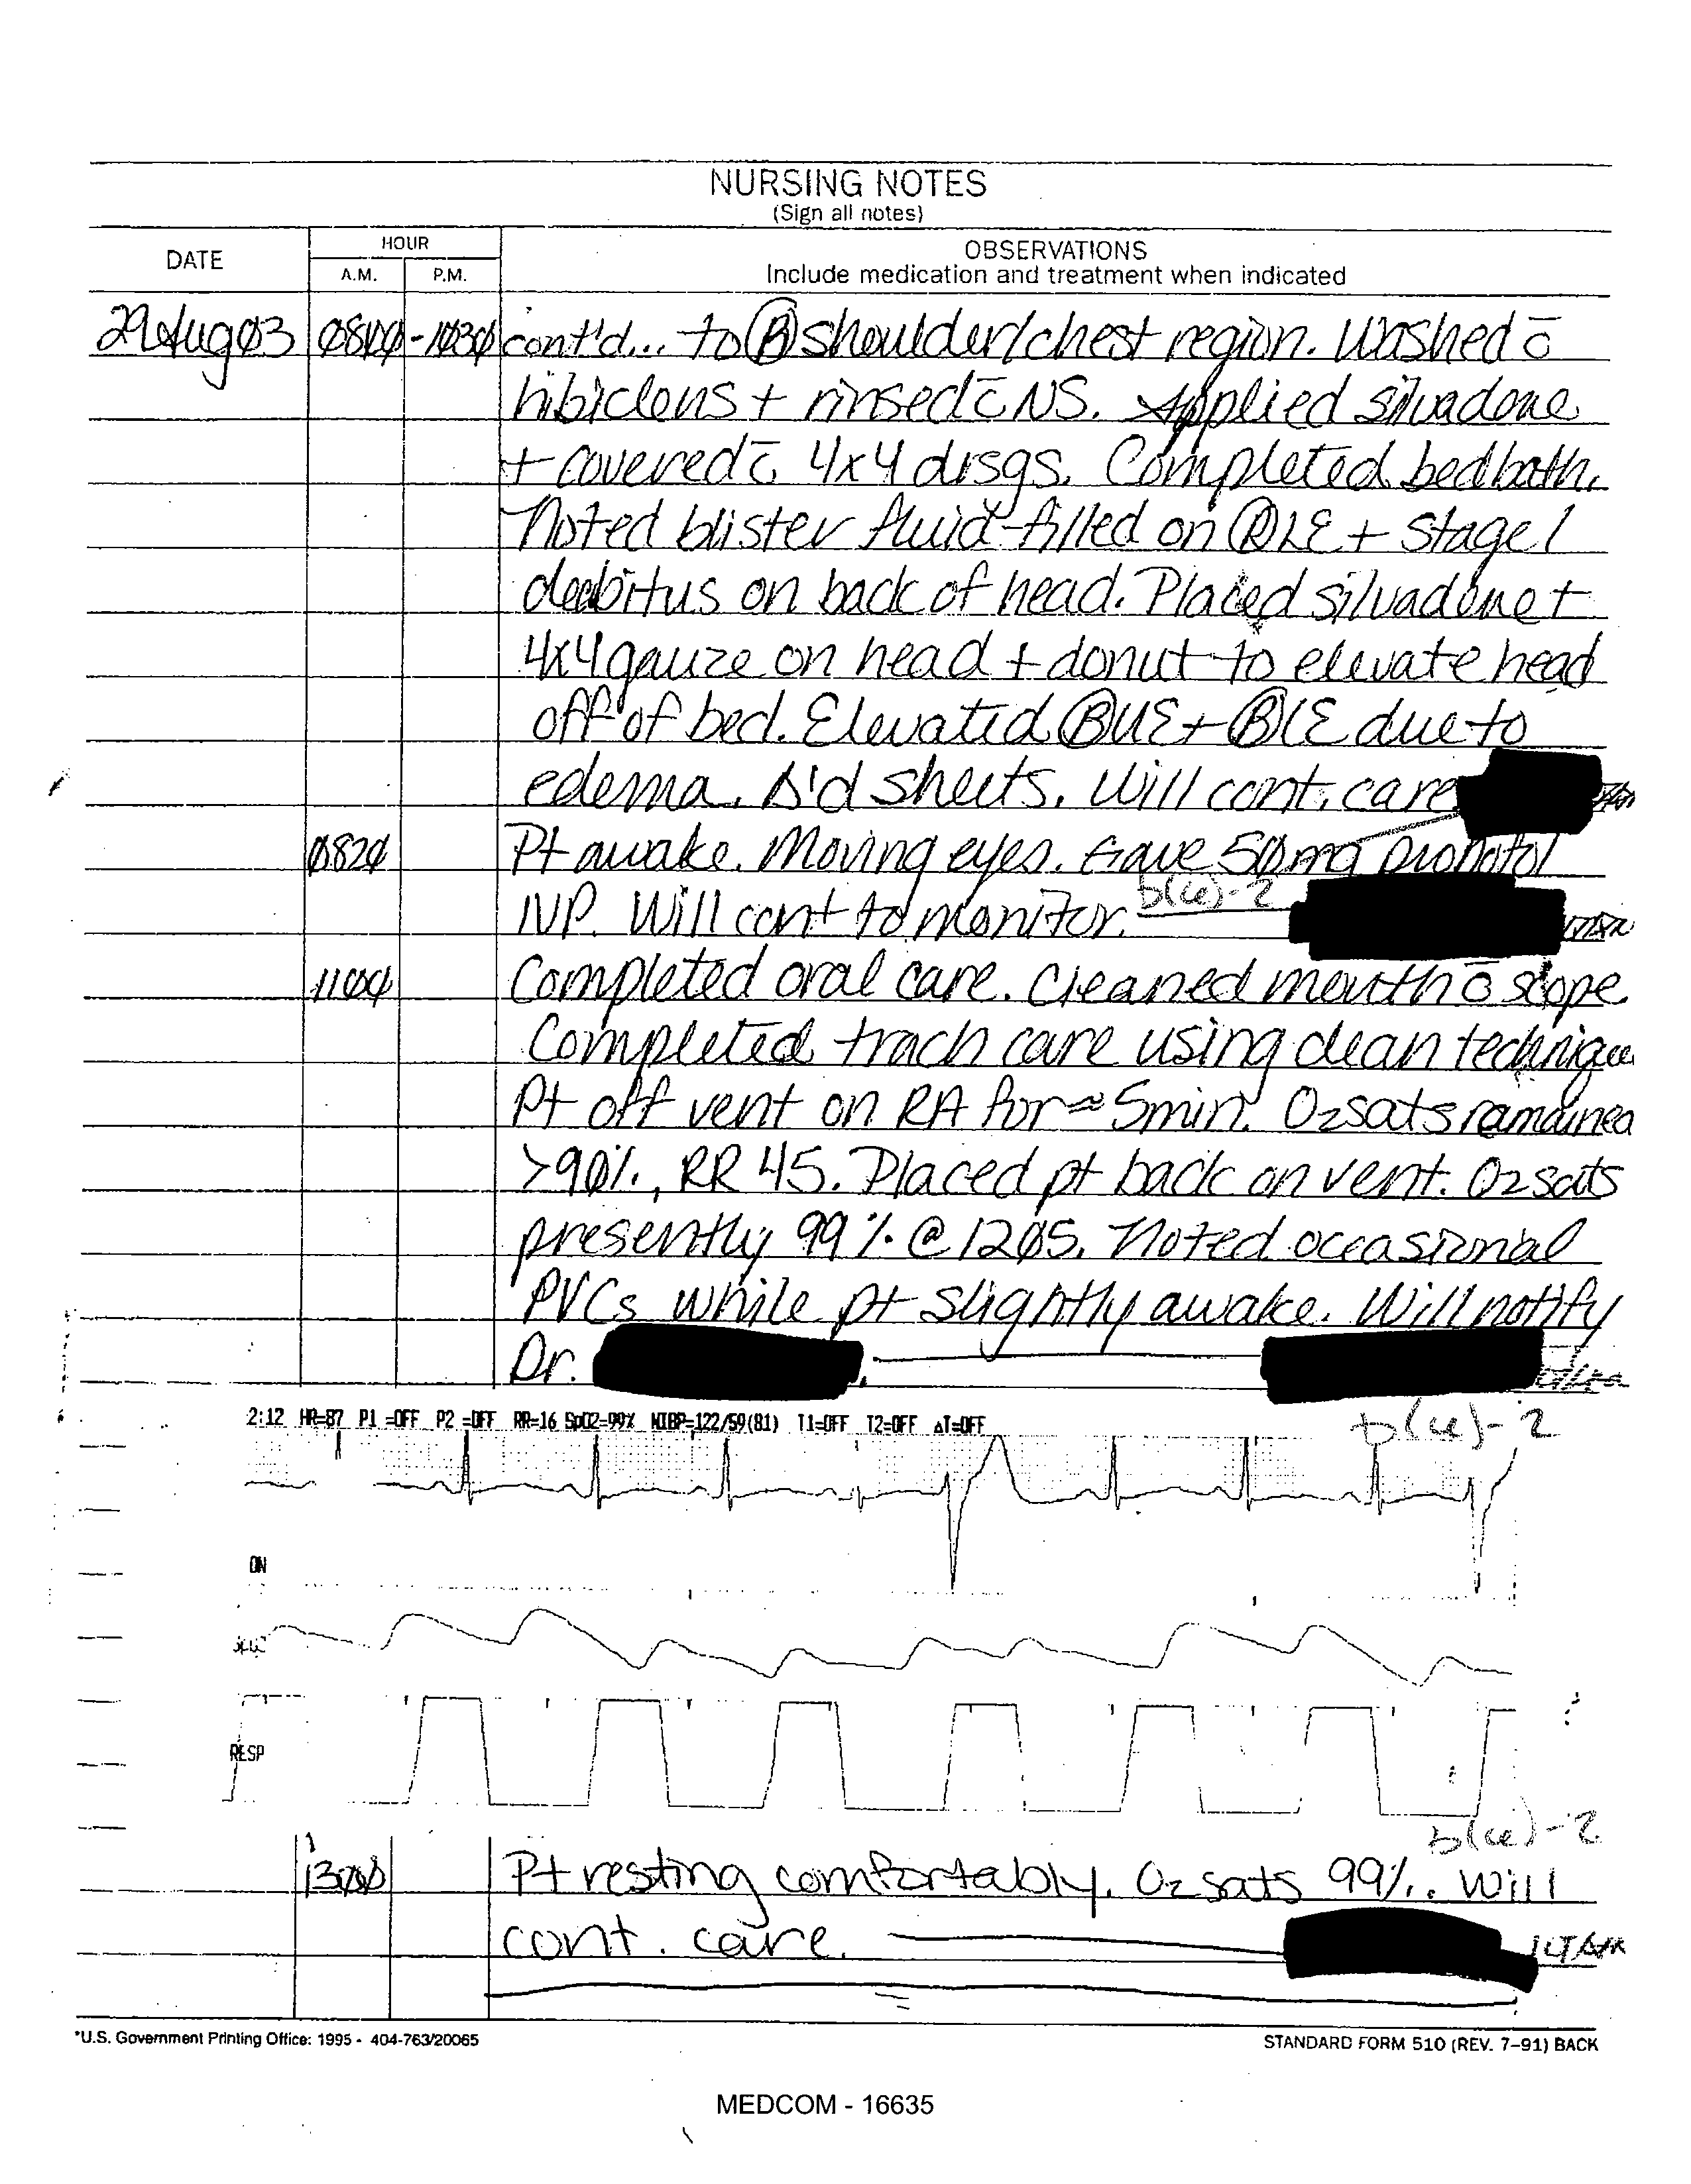 NURSING NOTES
(Sign all notes)
DATE
HOUR
OBSERVATIONS
A.M. P.M. Include medication and treatment when indicated
29Aug03 0800-1030 cont'd... to Ⓑ shoulder/chest region. Washed c̄
hibiclens + rinsed c̄ NS. Applied silvadene
+ covered c̄ 4x4 drsgs. Completed bedbath.
Noted blister fluid-filled on Ⓡ LE + stage 1
decubitus on back of head. Placed silvadene +
4x4 gauze on head + donut to elevate head
off of bed. Elevated Ⓑ UE + Ⓑ LE due to
edema. Δ'd sheets. Will cont. care
0820 Pt awake. Moving eyes. Gave 50mg
IVP. Will cont to monitor. b(6)-2
1100 Completed oral care. Cleaned mouth c̄ scope.
Completed trach care using clean technique
Pt off vent on RA for ≈ 5min. O2 sats remained
>90%, RR 45. Placed pt back on vent. O2 sats
presently 99% @ 1205. Noted occasional
PVCs while pt slightly awake. Will notify
Dr.
2:12 HR=87 P1 =OFF P2 =OFF RR=16 SpO2=99% NIBP=122/59(81) T1=OFF T2=OFF ΔT=OFF
b(6)-2
ON
RESP
b(6)-2
1300 Pt resting comfortably. O2 sats 99%. Will
cont. care. 1LT/AN
*U.S. Government Printing Office: 1995 - 404-763/20065
STANDARD FORM 510 (REV. 7-91) BACK
MEDCOM - 16635